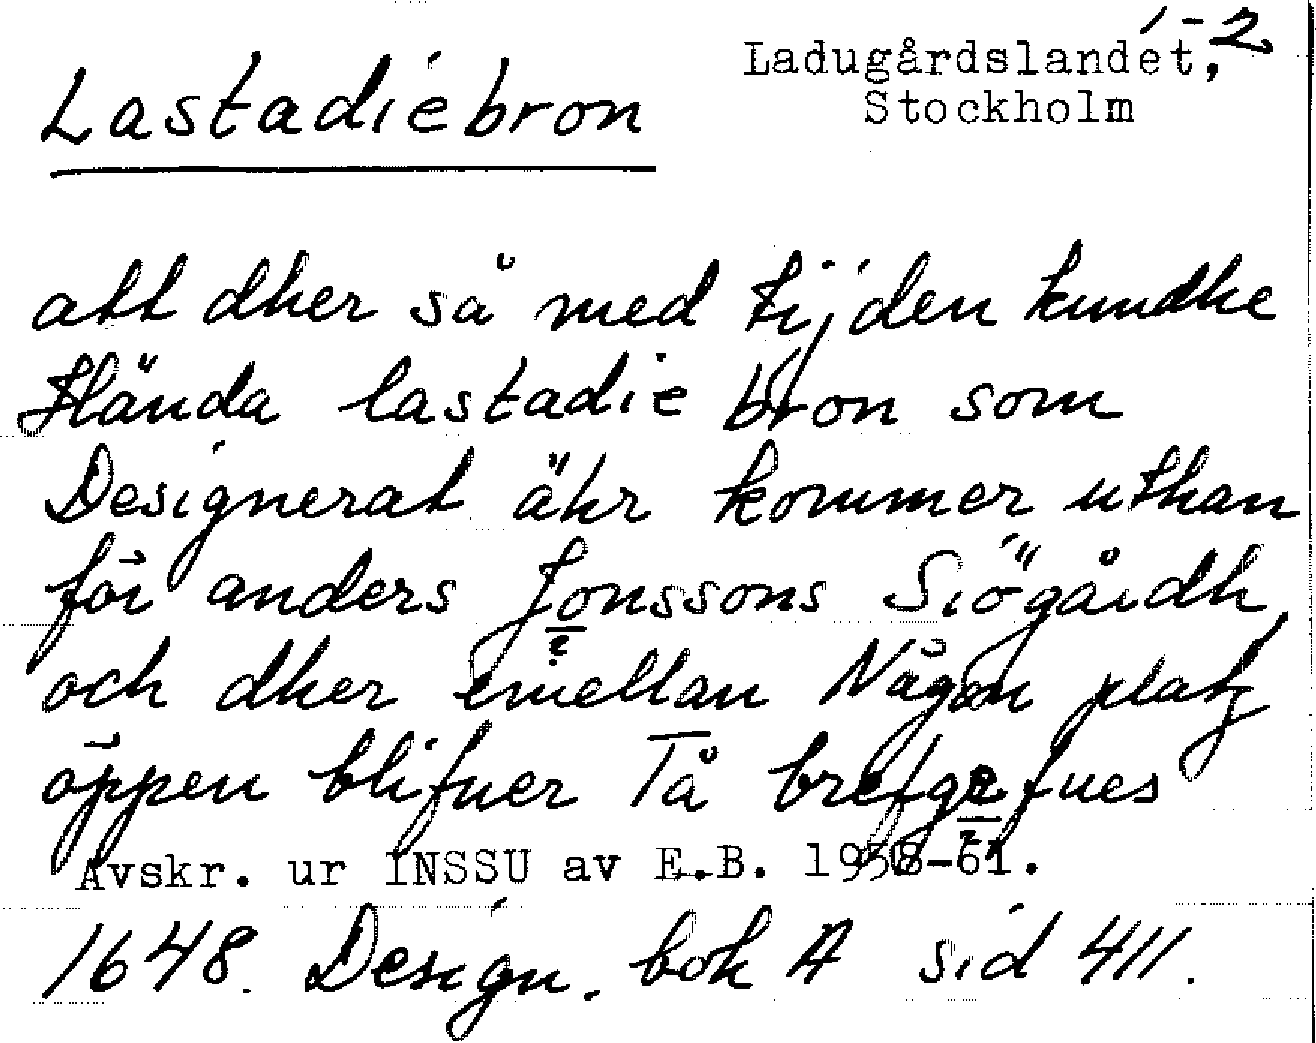 1-2
Lastadiebron
Ladugårdslandet,
Stockholm
att dher så med tijden kundhe
Hända lastadie bron som
Designerat ähr kommer uthan
för anders Jonssons Siögårdh,
?
och dher emellan Någon platz
öppen blifuer Tå
Avskr. ur INSSU av E.B. 1958-61.
1648. Design. bok A sid 411.